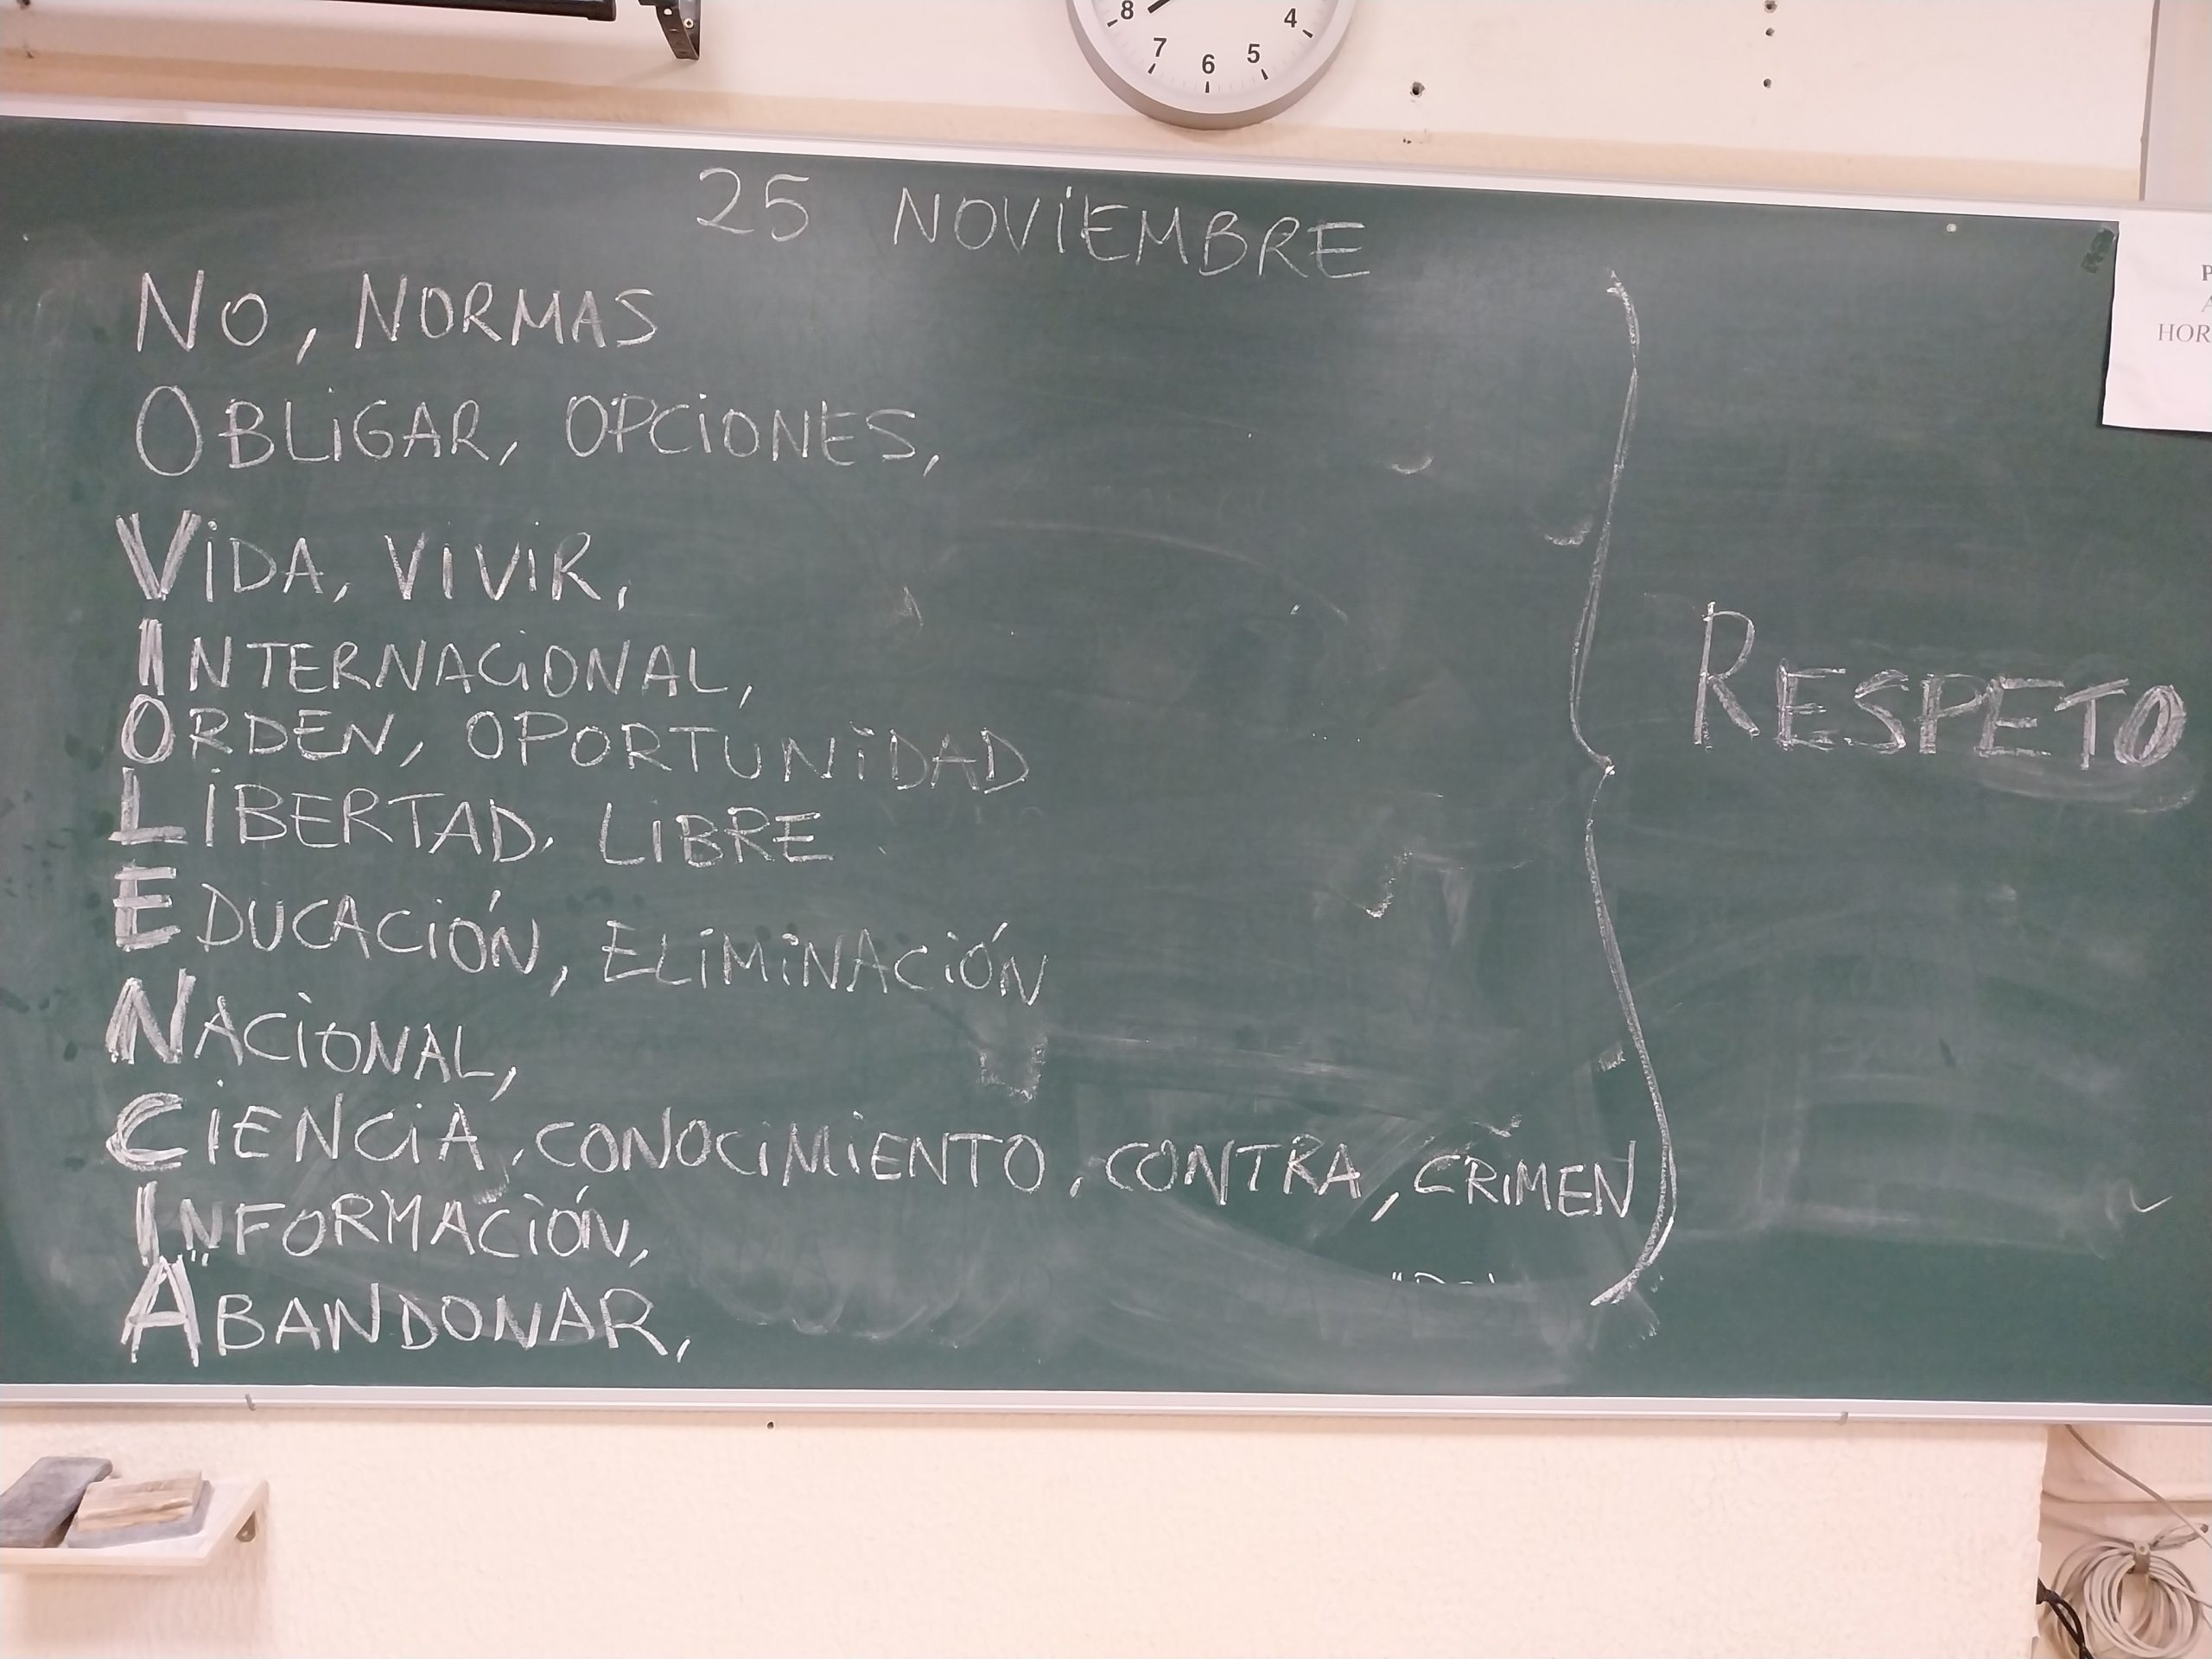 8 7 6 5 4
25 NOVIEMBRE
NO, NORMAS
OBLIGAR, OPCIONES,
VIDA, VIVIR,
INTERNACIONAL,
ORDEN, OPORTUNIDAD
LIBERTAD, LIBRE
EDUCACIÓN, ELIMINACIÓN
NACIONAL,
CIENCIA, CONOCIMIENTO, CONTRA, CRIMEN
INFORMACIÓN,
ABANDONAR,
RESPETO
P
A
HOR